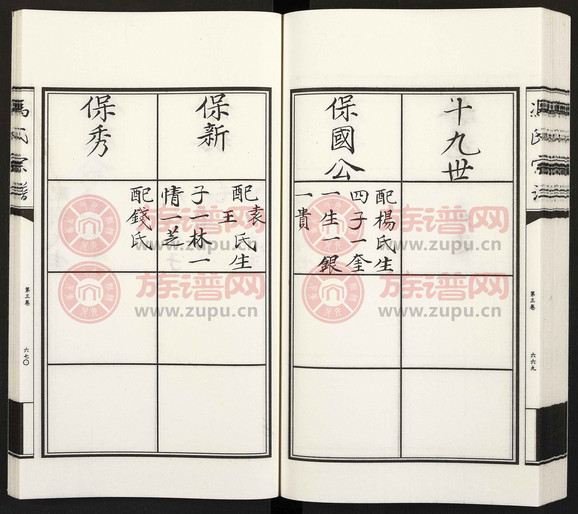 十九世
保國公
配楊氏生
四子一奎
一生一銀
一貴
保新
配袁王氏生
子一林一
情一芝
保秀
配錢氏
馮氏宗譜
第三卷
六六九
馮氏宗譜
第三卷
六七〇
族谱网
www.zupu.cn
族谱网
www.zupu.cn
族谱网
www.zupu.cn
族谱网
www.zupu.cn